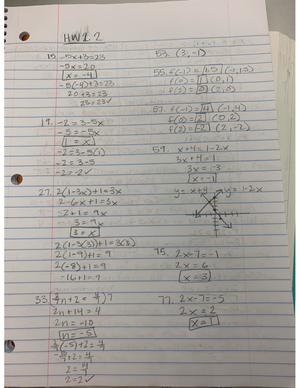 HW 1.2
15. -5x+3=23
-5x=20
x=-4
-5(-4)+3=23
20+3=23
23=23✓
19. -2=3-5x
-5=-5x
1=x
-2=3-5(1)
-2=3-5
-2=-2✓
27. 2(1-3x)+1=3x
2-6x+1=3x
3=9x
3=x
2(1-3(3))+1=3(3)
2(1-9)+1=9
2(-8)+1=9
-16+1=
2n+14=4
2n=-10
n=-5
2=2✓
53. (3,-1)
55. f(-1)=1.5 (-1,1.5)
f(0)=1 (0,1)
f(2)=0 (2,0)
57. f(-1)=4 (-1,4)
f(0)=2 (0,2)
f(2)=-2 (2,-2)
59. x+4=1-2x
3x+4=1
3x=-3
x=-1
y=x+4 y=1-2x
75. 2x-7=-1
2x=6
x=3
77. 2x-7=-5
2x=2
x=1